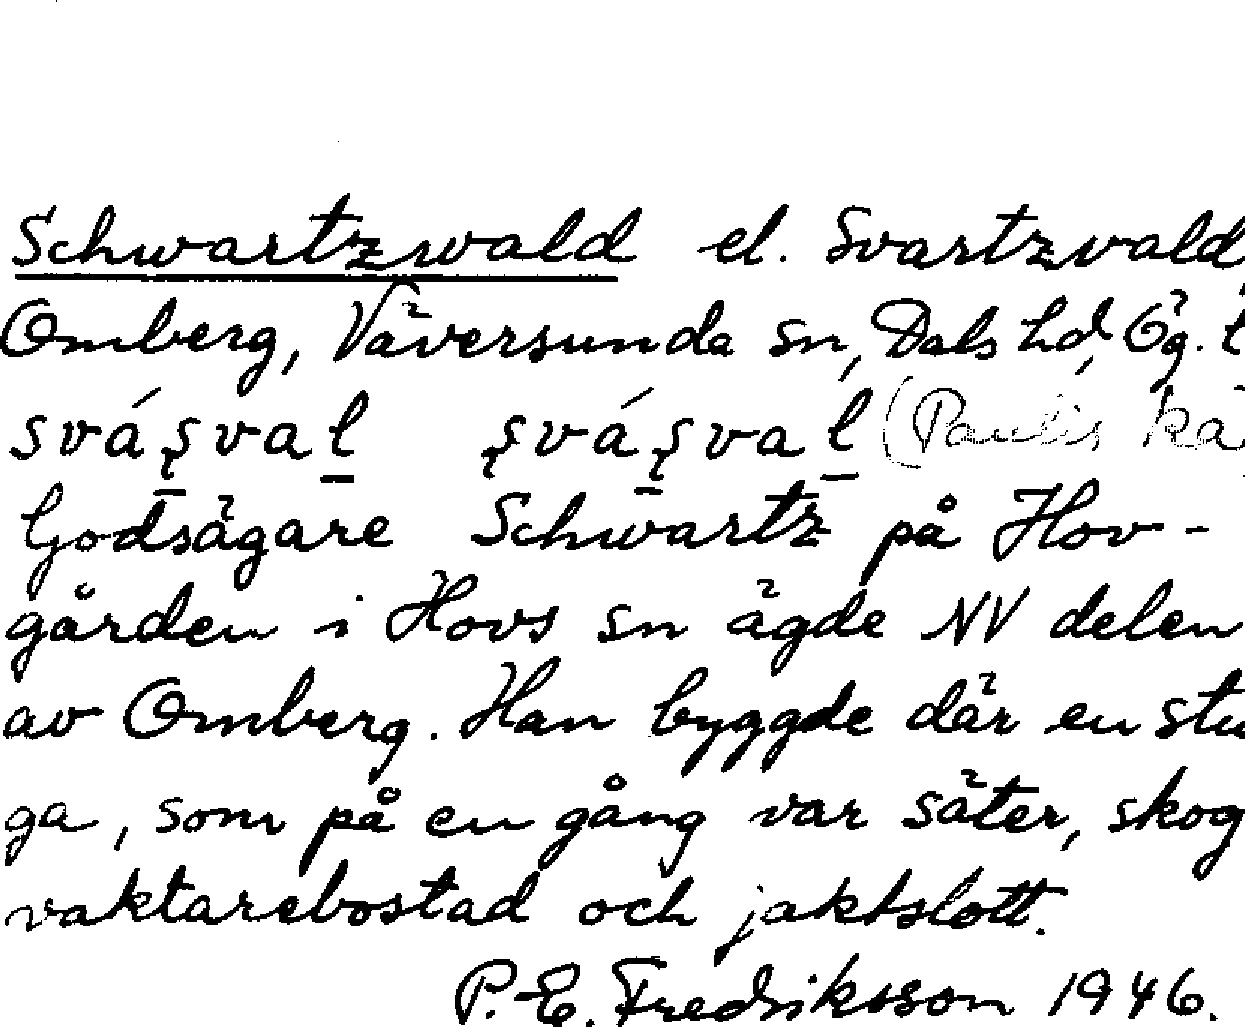 Schwartzwald el. Svartzvald
Omberg, Väversunda sn, Dals hd, Ög. l
sváʂval̲ ʂváʂval̲ (Paulis
Godsägare Schwartz på Hov-
gården i Hovs sn ägde NV delen
av Omberg. Han byggde där en stu
ga, som på en gång var säter, skog
vaktarebostad och jaktslott.
P. E. Fredriksson 1946.